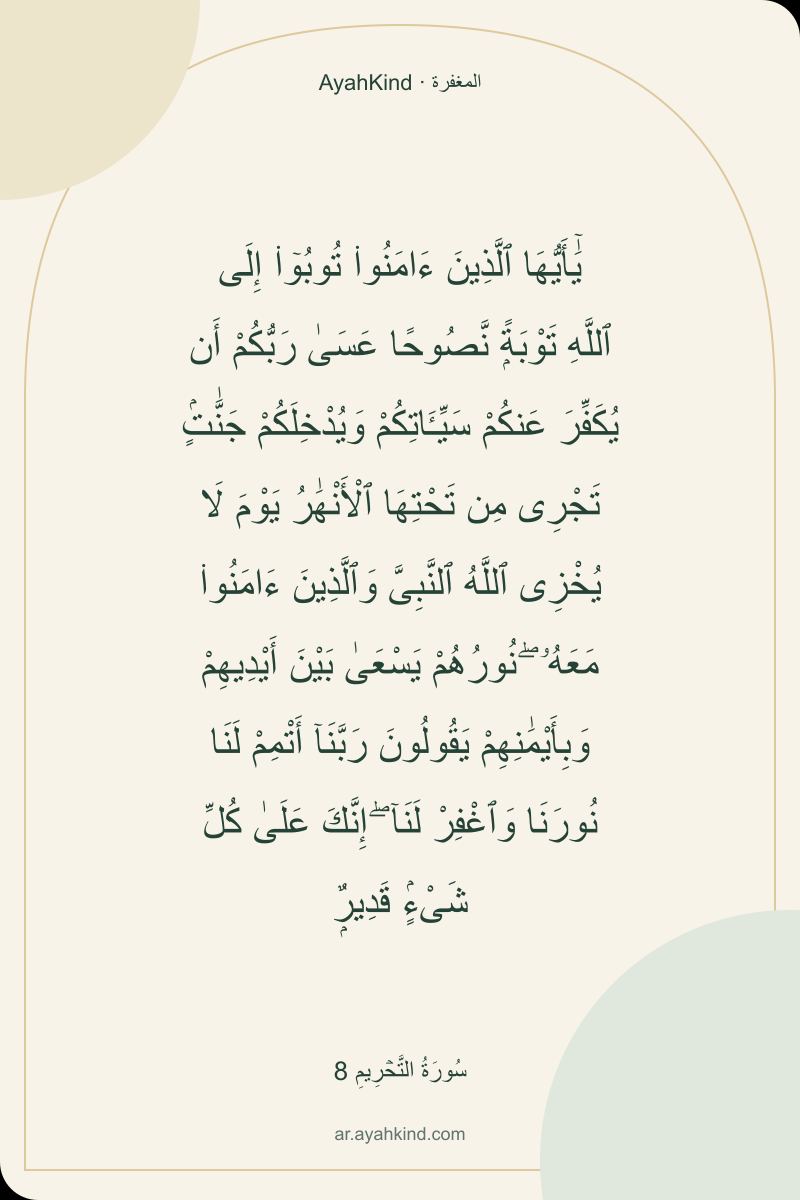 AyahKind · المغفرة
يَٰٓأَيُّهَا ٱلَّذِينَ ءَامَنُوا۟ تُوبُوٓا۟ إِلَى
ٱللَّهِ تَوْبَةًۭ نَّصُوحًا عَسَىٰ رَبُّكُمْ أَن
يُكَفِّرَ عَنكُمْ سَيِّـَٔاتِكُمْ وَيُدْخِلَكُمْ جَنَّٰتٍۢ
تَجْرِى مِن تَحْتِهَا ٱلْأَنْهَٰرُ يَوْمَ لَا
يُخْزِى ٱللَّهُ ٱلنَّبِىَّ وَٱلَّذِينَ ءَامَنُوا۟
مَعَهُۥ ۖ نُورُهُمْ يَسْعَىٰ بَيْنَ أَيْدِيهِمْ
وَبِأَيْمَٰنِهِمْ يَقُولُونَ رَبَّنَآ أَتْمِمْ لَنَا
نُورَنَا وَٱغْفِرْ لَنَآ ۖ إِنَّكَ عَلَىٰ كُلِّ
شَىْءٍۢ قَدِيرٌۭ
سُورَةُ التَّحۡرِيمِ 8
ar.ayahkind.com